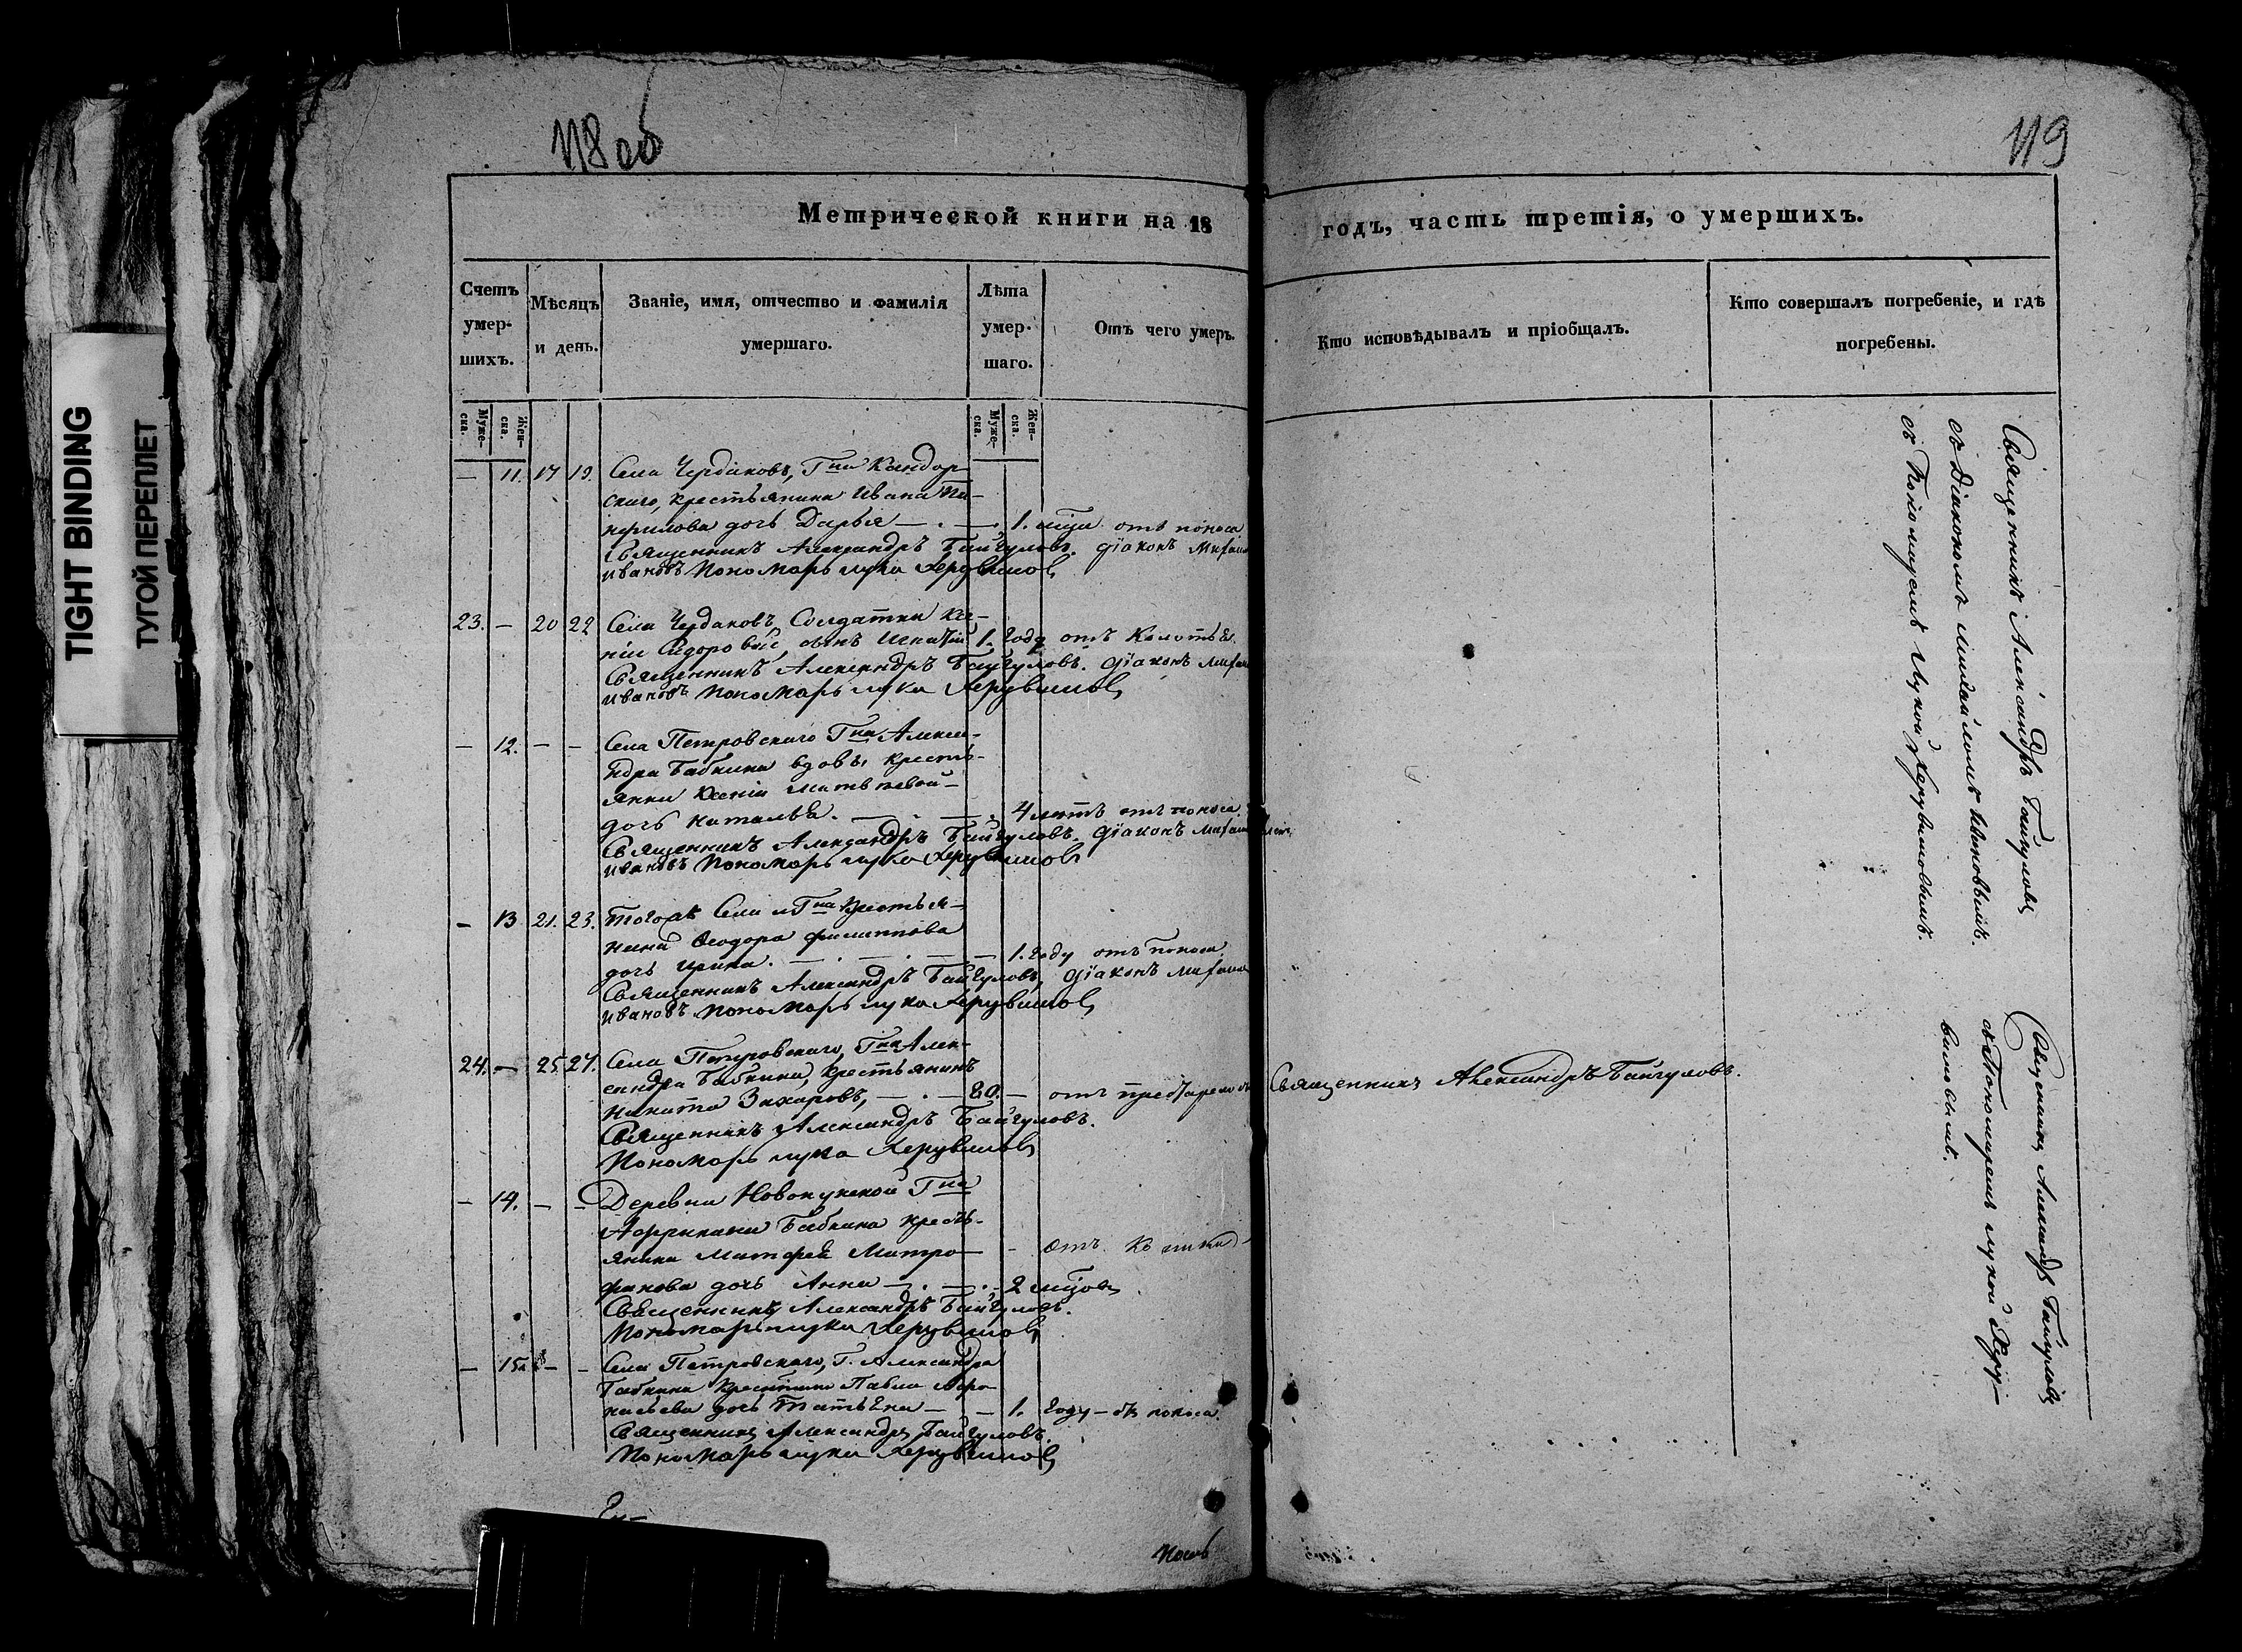 118 об
119
TIGHT BINDING
ТУГОЙ ПЕРЕПЛЕТ
Метрической книги на 18
годъ, часть третія, о умершихъ.
Счетъ умер-шихъ.
Мѣсяцъ и день.
Званіе, имя, отчество и фамилія умершаго.
Лѣта умер-шаго.
Отъ чего умеръ.
Кто исповѣдывалъ и пріобщалъ.
Кто совершалъ погребеніе, и гдѣ погребены.
Муже-ска.
Жен-ска.
Муже-ска.
Жен-ска.
— 11. 17 19. Села Чердаковъ, Гна Кандор-
скаго, крестьянина Ивана
дочь Дарья — . — . 1. отъ поноса
Священникъ Александръ Байгуловъ. Діаконъ Михаилъ
Ивановъ Пономарь Лука Херувимовъ
23. — 20 22 Села Чердаковъ, Солдатки Ксе-
ніи Сидоровой, сынъ Игнатій 1. году отъ колотья.
Священникъ Александръ Байгуловъ. Діаконъ Михаилъ
Ивановъ Пономарь Лука Херувимовъ
— 12. — — Села Петровскаго Гна Алекса-
ндра Бабкина вдовы кресть-
янки Ксеніи Матвѣевой
дочь Наталья. — . — . 4 лѣтъ отъ поноса.
Священникъ Александръ Байгуловъ. Діаконъ Михаилъ
Ивановъ Пономарь Лука Херувимовъ
— 13 21. 23. Тогоже Села и Гна Крестья-
нина Ѳеодора Филиппова
дочь Ирина. — . — . — — 1. году отъ поноса
Священникъ Александръ Байгуловъ, Діаконъ Михаилъ
Ивановъ Пономарь Лука Херувимовъ
24. — 25 27. Села Петровскаго, Гна Алек-
сандра Бабкина, Крестьянинъ
Никита Захаровъ, — . — 80. — отъ престарелости
Священникъ Александръ Байгуловъ.
Священникъ Александръ Байгуловъ.
Пономарь Лука Херувимовъ
— 14. — — Деревни Гна
Аффрикана Бабкина кресть-
янина Матфея Митро- — отъ
фанова дочь Анна — . — . 2
Священникъ Александръ Байгуловъ.
Пономарь Лука Херувимовъ
— 15 — — Села Петровскаго, Г. Александра
Бабкина Крестьянина Павла
дочь Татьяна — — 1. году — отъ поноса.
Священникъ Александръ Байгуловъ.
Пономарь Лука Херувимовъ
Священникъ Александръ Байгуловъ
съ Діакономъ Михайломъ Ивановымъ.
съ Пономаремъ Лукой Херувимовымъ.
Священникъ Александръ Байгуловъ
съ Пономаремъ Лукой Херу-
вимовымъ.